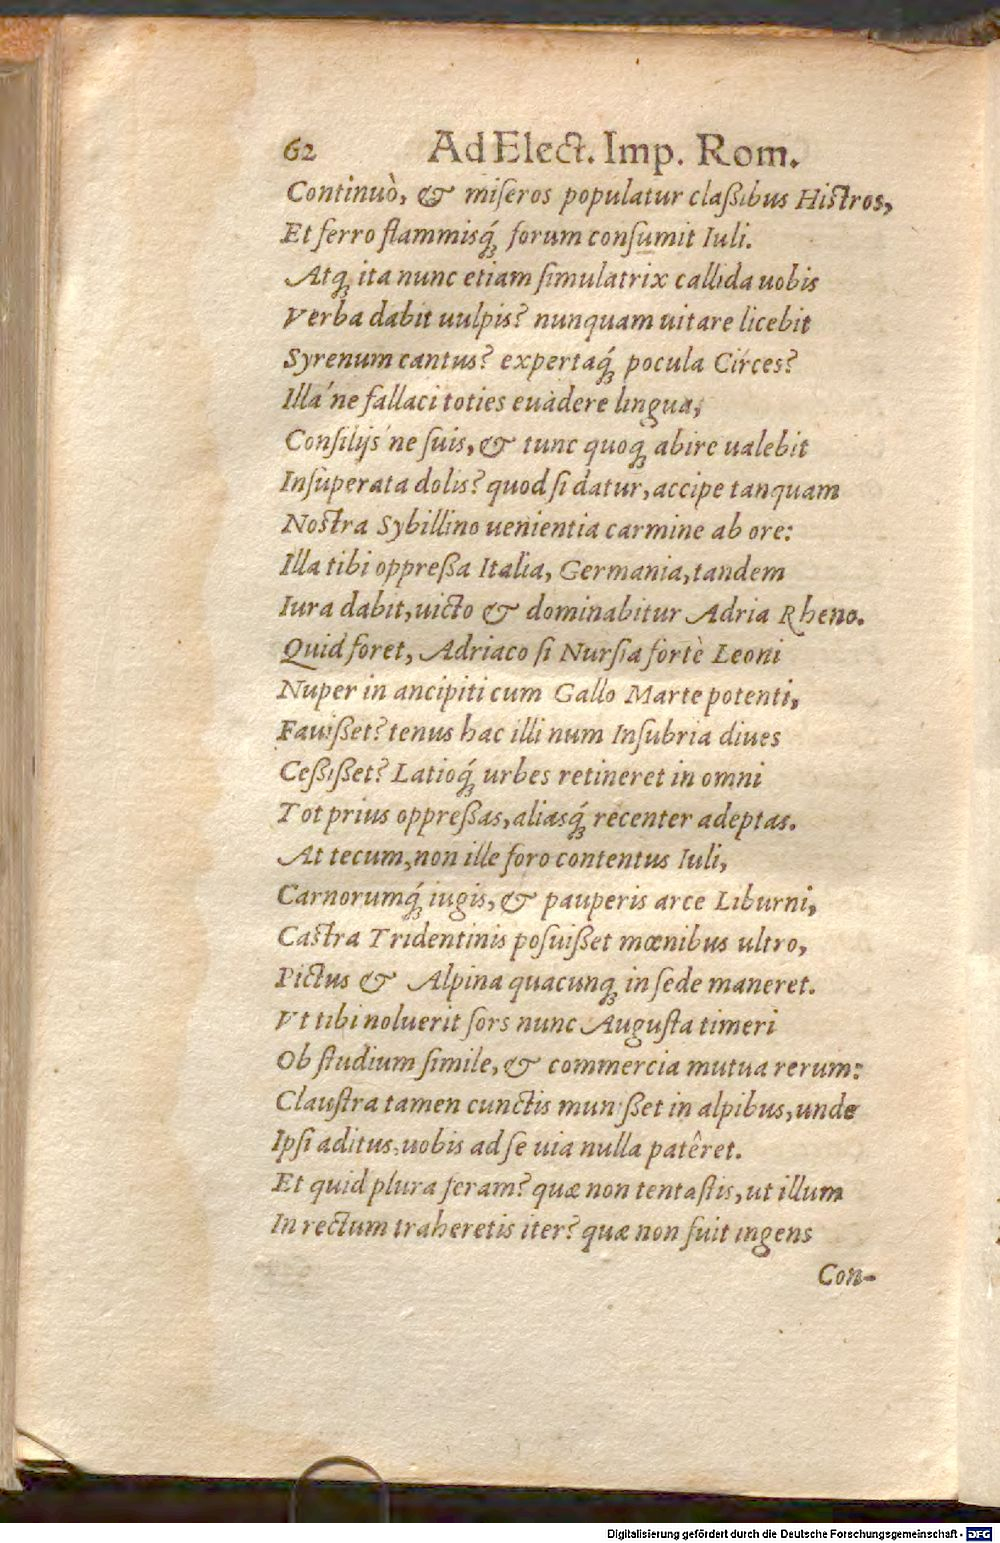 62 Ad Elect. Imp. Rom.
Continuò, & miseros populatur claßibus Histros,
Et ferro flammisq́; forum consumit Iuli.
Atq; ita nunc etiam simulatrix callida uobis
Verba dabit uulpis? nunquam uitare licebit
Syrenum cantus? expertaq́; pocula Circes?
Illa´ne fallaci toties euadere lingua,
Consilijs´ne suis, & tunc quoq; abire ualebit
Insuperata dolis? quod si datur, accipe tanquam
Nostra Sybillino uenientia carmine ab ore:
Illa tibi oppreßa Italia, Germania, tandem
Iura dabit, uicto & dominabitur Adria Rheno.
Quid foret, Adriaco si Nursia fortè Leoni
Nuper in ancipiti cum Gallo Marte potenti,
Fauißet? tenus hac illi num Insubria diues
Ceßißet? Latioq́; urbes retineret in omni
Tot prius oppreßas, aliasq́; recenter adeptas.
At tecum, non ille foro contentus Iuli,
Carnorumq́; iugis, & pauperis arce Liburni,
Castra Tridentinis posuißet mœnibus ultro,
Pictus & Alpina quacunq; in sede maneret.
Vt tibi noluerit sors nunc Augusta timeri
Ob studium simile, & commercia mutua rerum:
Claustra tamen cunctis munißet in alpibus, unde
Ipsi aditus, uobis ad se uia nulla patêret.
Et quid plura feram? quæ non tentastis, ut illum
In rectum traheretis iter? quæ non fuit ingens
Con-
Digitalisierung gefördert durch die Deutsche Forschungsgemeinschaft - DFG